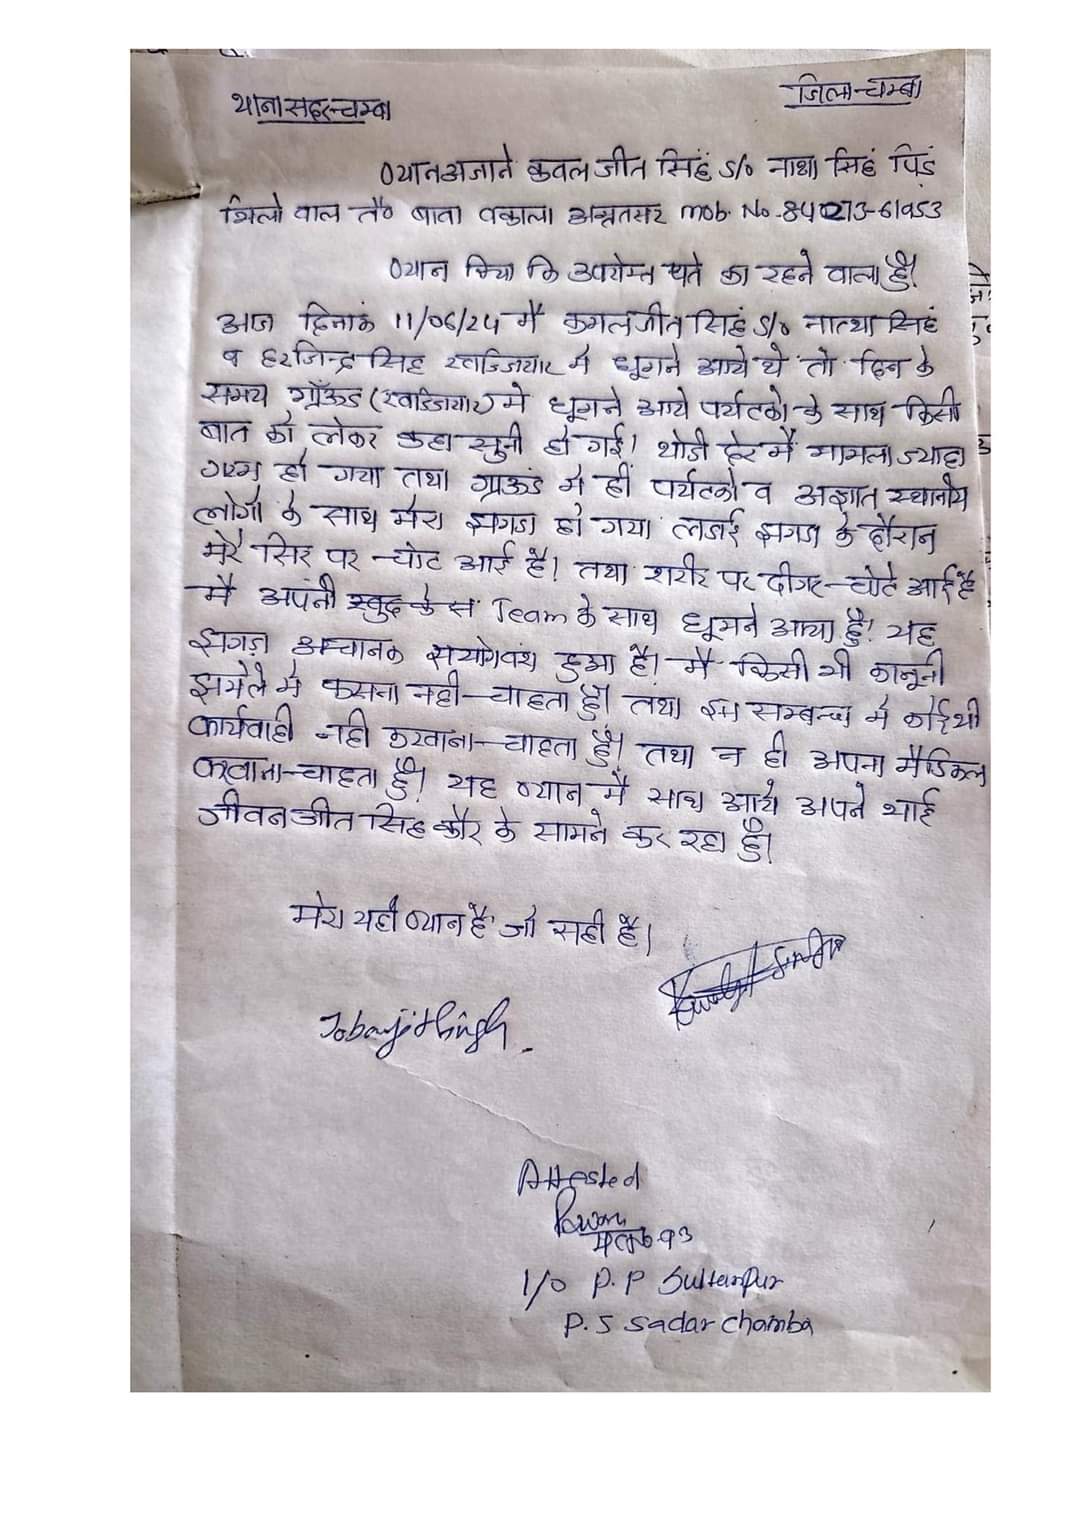 थाना सदर चम्बा
जिला चम्बा
ब्यान अजाने कवलजीत सिहं S/o नाथा सिहं पिडं
तै० बाबा बकाला अमृतसर mob. No. 84273-61953
ब्यान किया कि उपरोक्त पते का रहने वाला हूँ।
आज दिनाकं 11/06/24 मैं कमलजीत सिहं S/o नात्था सिहं
व हरजिन्द्र सिह खज्जियार मे घूमने आये थे तो दिन के
समय ग्रॉऊंड (खज्जियार) मे घूमने आये पर्यटको के साथ किसी
बात को लेकर कहा सुनी हो गई। थोडी देर मैं मामला ज्यादा
गरम हो गया तथा ग्राऊंड मे हीं पर्यटको व अज्ञात स्थानीय
लोगों के साथ मेरा झगडा हो गया लडाई झगडा के दौरान
मेरे सिर पर चोट आई है। तथा शरीर पर दीगर चोटे आई है
मै अपनी खुद के Team के साथ घूमने आया हूँ। यह
झगड़ा अचानक संयोगवंश हुआ है। मै किसी भी कानूनी
झमेले मे फसना नही चाहता हूँ। तथा इस सम्बन्ध मे कोई भी
कार्यवाही नही करवाना चाहता हूँ। तथा न ही अपना मैडिकल
करवाना चाहता हूँ। यह ब्यान मैं साथ आये अपने भाई
जीवनजीत सिह कौर के सामने कर रहा हूँ।
मेरा यही ब्यान है जो सही है।
Attested
Pawan
I/O P.P Sultanpur
P.S Sadar Chamba